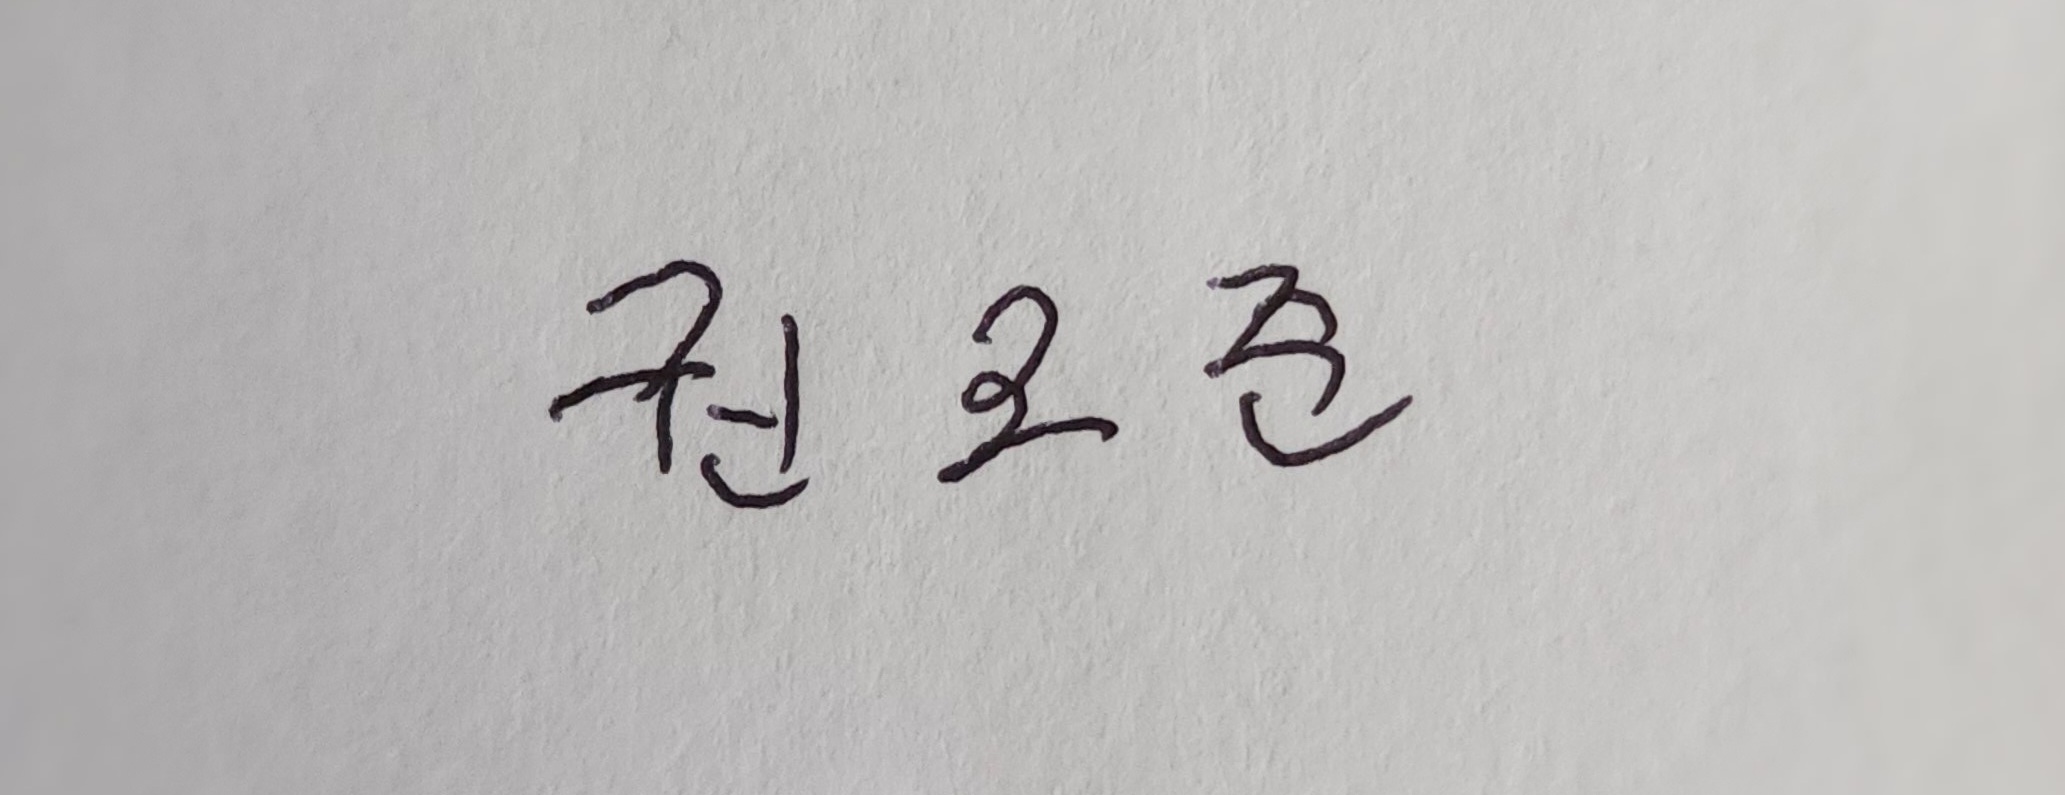 권오준